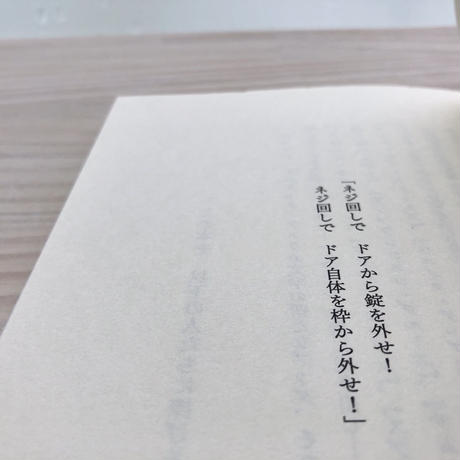 「ネジ回しで　ドアから錠を外せ！
ネジ回しで　ドア自体を枠から外せ！」